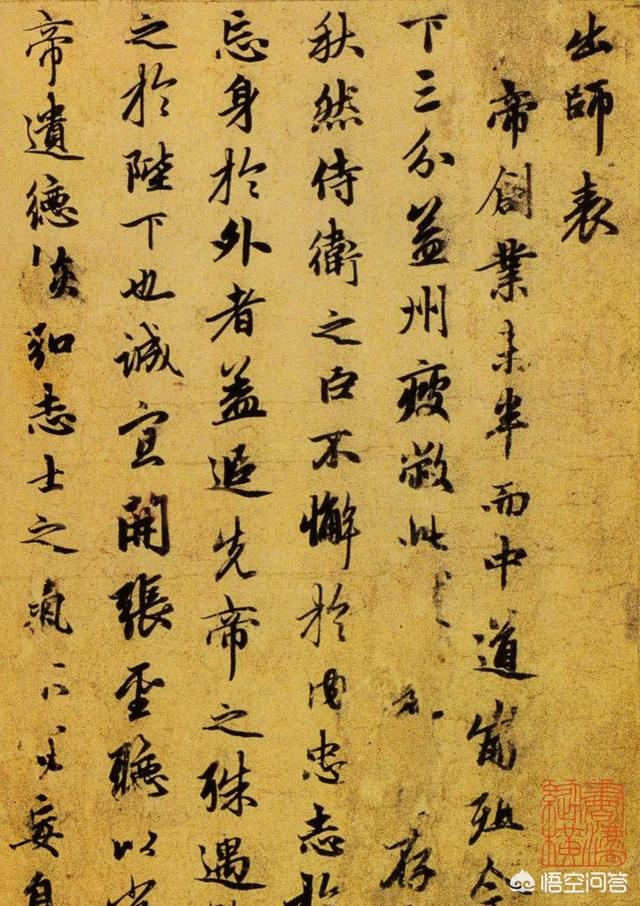 出師表
帝創業未半而中道崩殂今
下三分益州疲敝此 存
秋然侍衛之臣不懈於内忠志於
忘身於外者蓋追先帝之殊遇
之於陛下也誠宜開張聖聽以光
帝遺德恢弘志士之氣不宜妄自
悟空问答